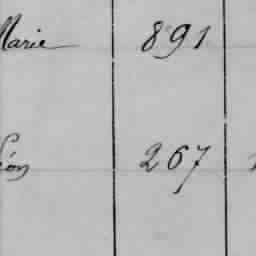 Marie 891
Léon 267